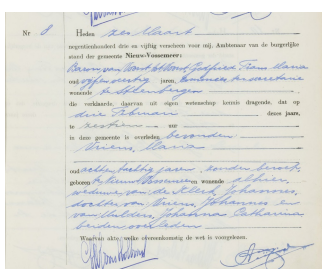 Nr 8 Heden zes Maart
negentienhonderd drie en vijftig verscheen voor mij, Ambtenaar van de burgerlijke
stand der gemeente Nieuw-Vossemeer:
Frans Maria
oud jaren,
wonende te Steenbergen
die verklaarde, daarvan uit eigen wetenschap kennis dragende, dat op
drie Februari dezes jaars,
te zestien uur
in deze gemeente is overleden bevonden
Vriens, Maria
oud achten tachtig jaren, zonder beroep,
geboren te Nieuw Vossemeer en wonende alhier,
weduwe van de Klerk, Johannes,
dochter van Vriens, Johannes en
van Mulders, Johanna Catharina
beiden overleden
Waarvan akte, welke overeenkomstig de wet is voorgelezen.